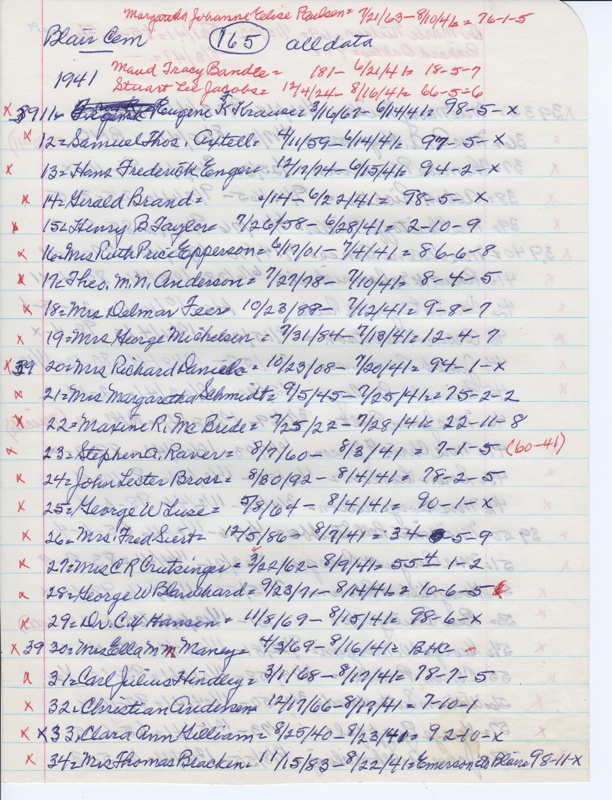 Margaretha Johanne Celise Paulson = 7/21/63 - 8/10/41 = 76-1-5
Blair Cem 165 all data
1941 Maud Tracy Bandle = 181 - 6/21/41 = 18-5-7
Stuart Lee Jacobs = 12/4/24 - 8/16/41 = 66-5=6
x 3911 = Eugene K Krause = 3/16/67 - 6/14/41 = 98-5-x
x 12 = Samuel Thos. Axtell = 4/11/59 - 6/14/41 = 97-5-x
x 13 = Hans Frederick Enger = 12/17/74 - 6/15/41 = 94-2-x
x 14 = Gerald Brand = /14 - 6/22/41 = 98-5-x
x 15 = Henry B Taylor = 7/26/58 - 6/28/41 = 2-10-9
x 16 = Mrs Ruth Price Epperson = 6/17/01 - 7/4/41 = 86-6-8
x 17 = Theo. M. N. Anderson = 7/27/78 - 7/10/41 = 8-4-5
x 18 = Mrs Delmar Feer 10/23/88 - 7/12/41 = 9-8-7
x 19 = Mrs George Michelsen = 7/31/84 - 7/13/41 = 12-4-7
x 39 20 = Mrs Richard Daniels = 10/23/08 - 7/20/41 = 94-1-x
x 21 = Mrs Margaretha Schmidt = 9/5/45 - 7/25/41 = 75-2-2
x 22 = Maxine R. McBride = 7/25/22 - 7/28/41 = 22-11-8
x 23 = Stephen A. Raver = 8/7/60 - 8/3/41 = 7-1-5 (60-41)
x 24 = John Lester Bross = 8/30/92 - 8/4/41 = 78-2-5
x 25 = George W Luse = 5/8/64 - 8/4/41 = 90-1-x
x 26 = Mrs. Fred Siert = 12/5/86 - 8/7/41 = 34-5-9
x 27 = Mrs C R Crutsinger = 3/22/62 - 8/9/41 = 554-1-2
x 28 = George W Blanchard = 9/23/71 - 8/14/41 = 10-6-5
x 29 = Dr. C H Hansen = 11/8/69 - 8/15/41 = 98-6-x
x 39 30 = Mrs Ella M Maney = 4/3/69 - 8/16/41 = BHC
x 31 = Carl Julius Hindley = 3/1/68 - 8/17/41 = 78-7-5
x 32 = Christian Andersen 12/17/66 - 8/19/41 = 7-10-1
x x 33 = Clara Ann Hilliam = 8/25/40 - 8/23/41 = 92-10-x
x 34 = Mrs Thomas Bracken = 11/15/83 - 8/22/41 = Emerson to Blair = 98-11-x